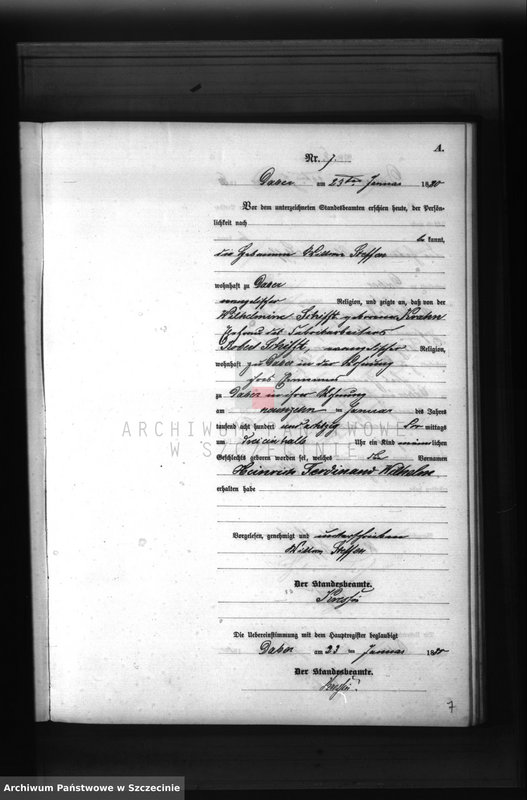 A.
Nr. 7
Daber am 23ten Januar 1880
Vor dem unterzeichneten Standesbeamten erschien heute, der Persön-
lichkeit nach
be kannt,
die Hebamme Steffen
wohnhaft zu Daber
evangelischer Religion, und zeigte an, daß von der
Wilhelmine Schifft geborenen
Ehefrau des Fabrikarbeiters
Robert Schifft, evangelischer Religion,
wohnhaft zu Daber in der Wohnung
ihres Ehemannes
zu Daber in ihrer Wohnung
am neunzehn ten Januar des Jahres
tausend acht hundert und achtzig Vor mittags
um Uhr ein Kind männlichen
Geschlechts geboren worden sei, welches die Vornamen
Heinrich Ferdinand Wilhelm
erhalten habe
Vorgelesen, genehmigt und unterschrieben
Steffen
Der Standesbeamte.
Die Uebereinstimmung mit dem Hauptregister beglaubigt
Daber am 23 ten Januar 1880
Der Standesbeamte.
7
ARCHIWUM PAŃSTWOWE
W SZCZECINIE
Archiwum Państwowe w Szczecinie